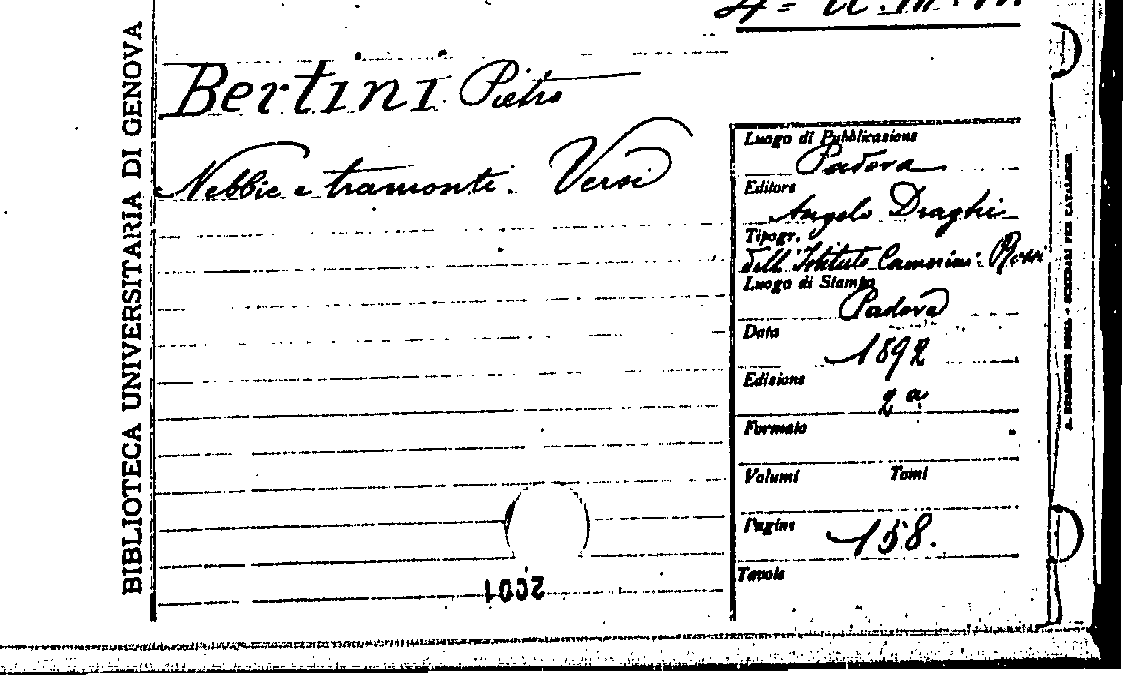 BIBLIOTECA UNIVERSITARIA DI GENOVA
Bertini Pietro
Nebbie e tramonti. Versi
Luogo di Pubblicazione
Padova
Editore
Angelo Draghi
Tipogr.
dell'Istituto Camerini-Rossi
Luogo di Stampa
Padova
Data
1892
Edizione
2a
Formato
Volumi Tomi
Pagine
158.
Tavole
2001